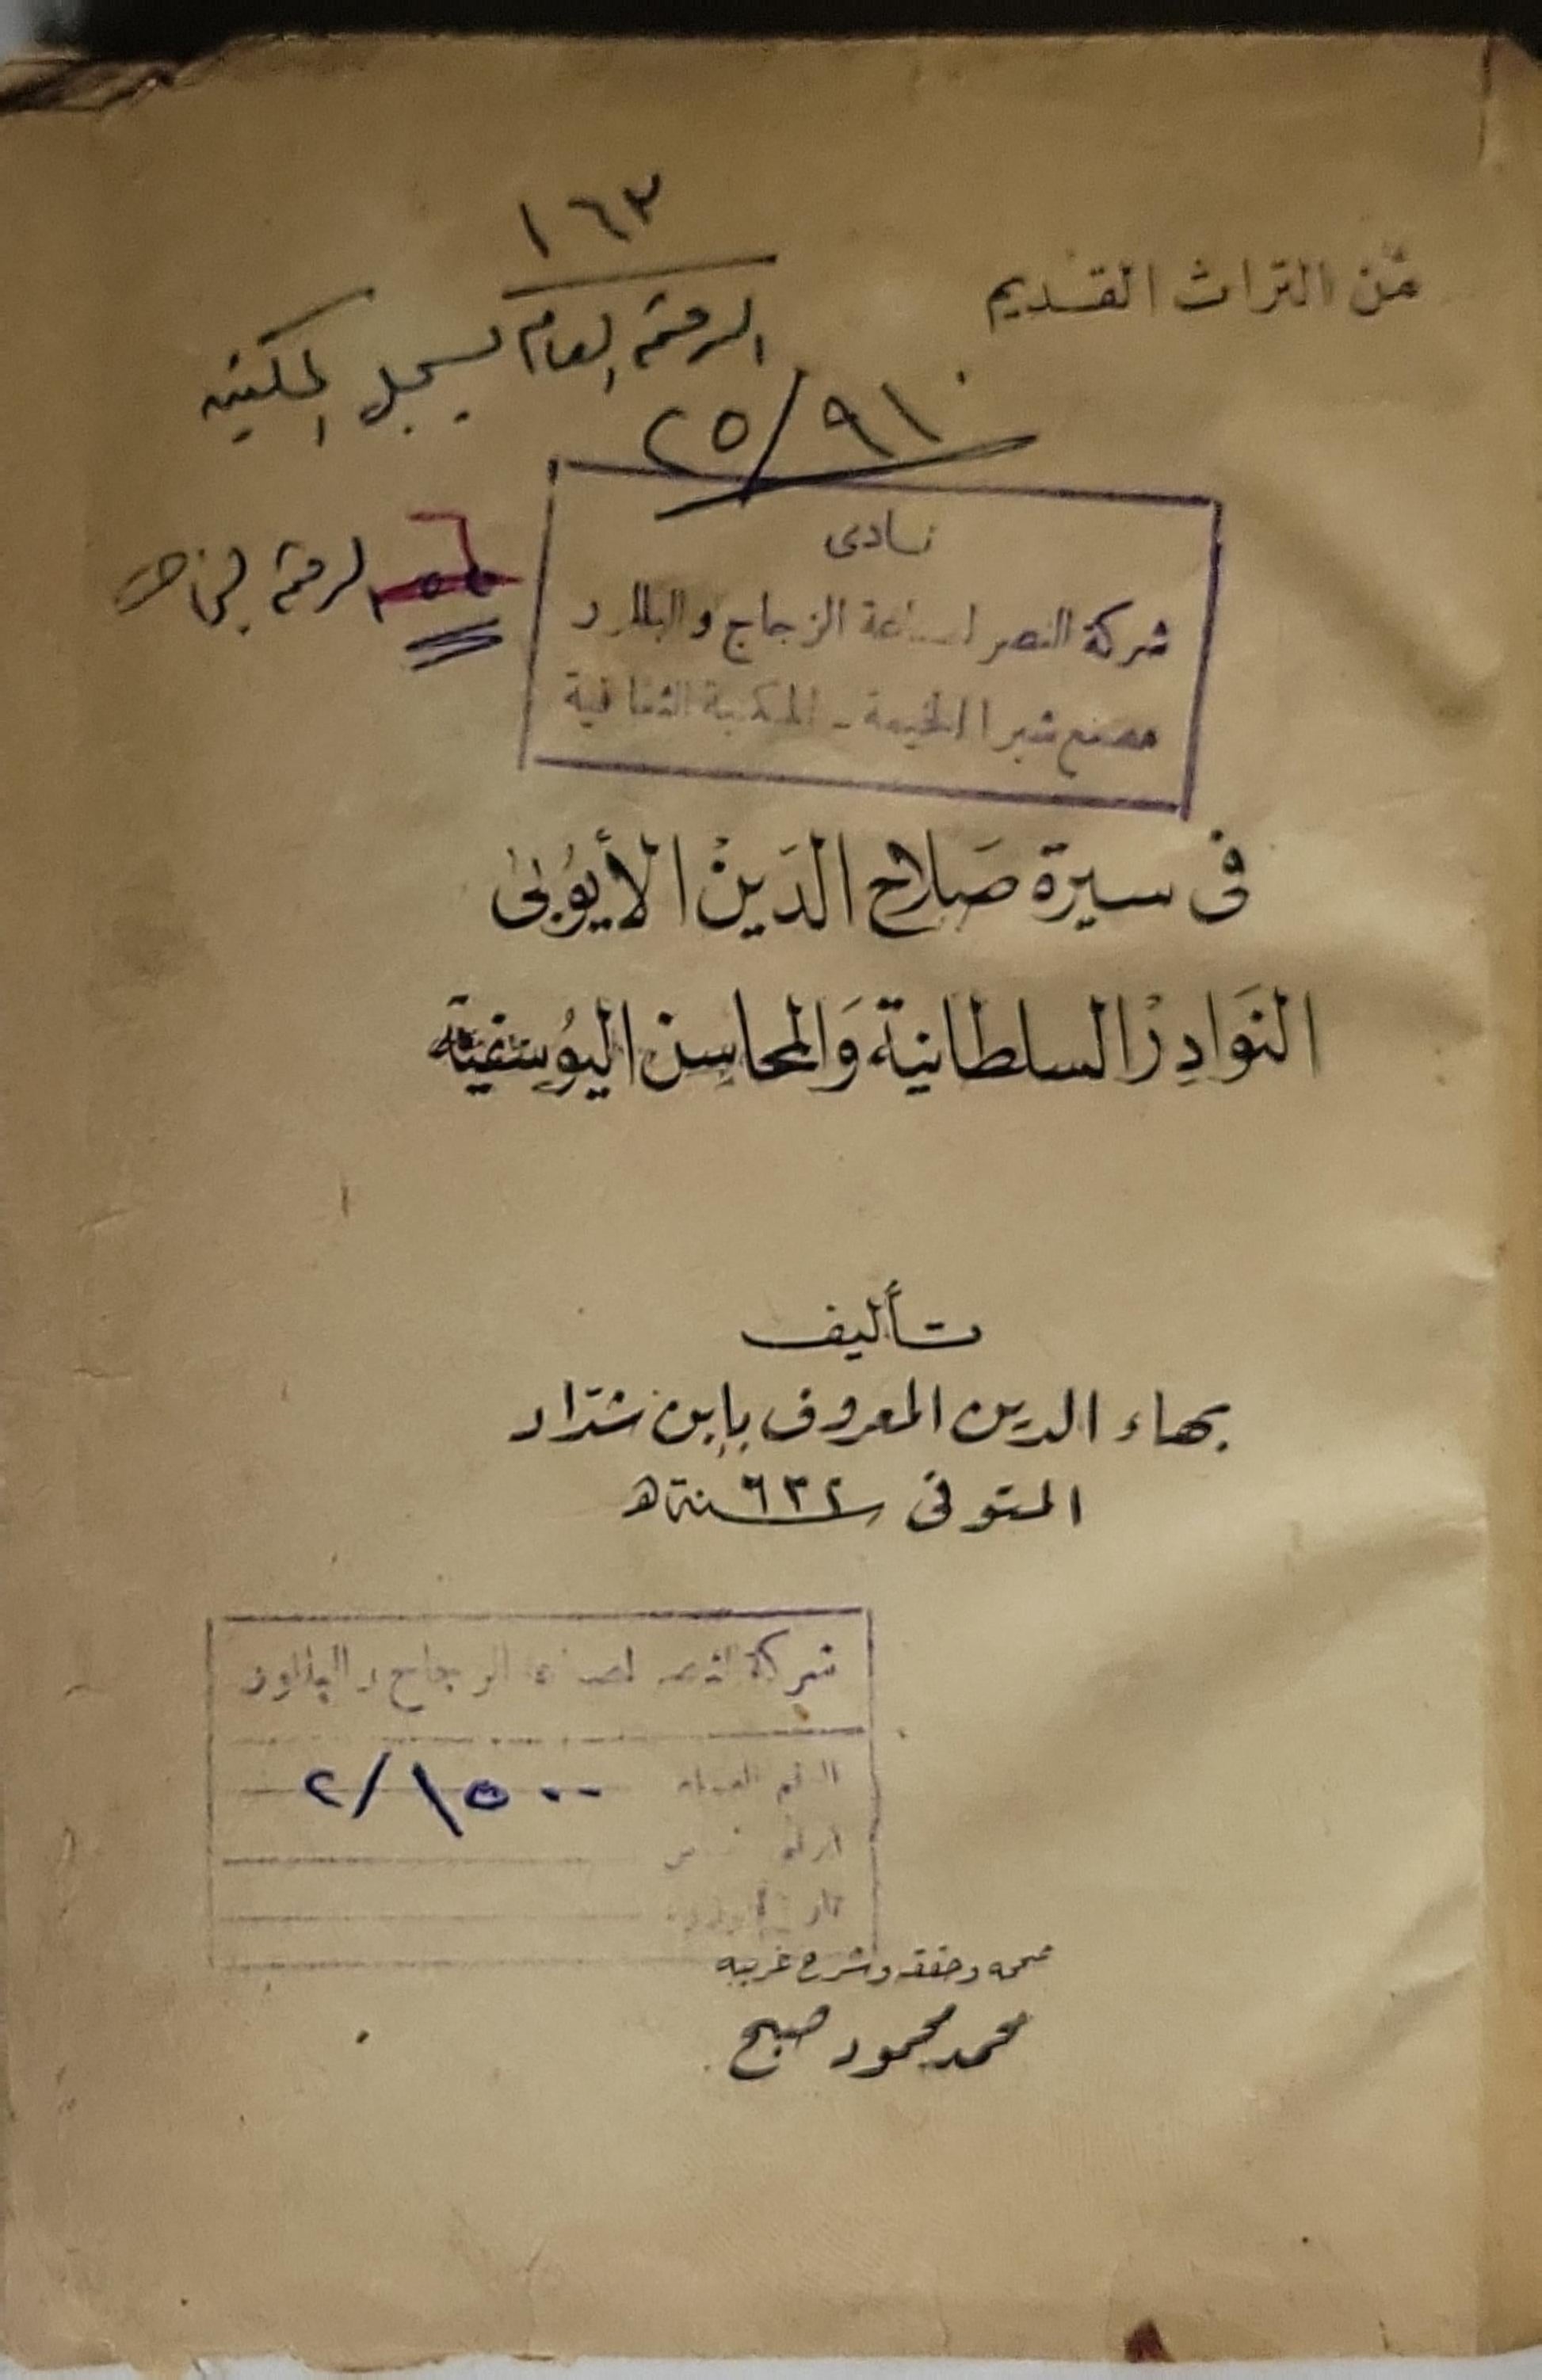 ١٦٣
من التراث القديم
الرقم العام لسجل المكتبة
٢٥/٩١٠
نادى
الرقم الخاص ٦
شركة النصر لصناعة الزجاج والبللور
مصنع شبرا الخيمة - المكتبة الثقافية
فى سيرة صلاح الدين الأيوبى
النوادر السلطانية والمحاسن اليوسفية
تأليف
بهاء الدين المعروف بابن شداد
المتوفى سنة ٦٣٢ هـ
شركة النصر لصناعة الزجاج والبللور
الرقم العام ٢/١٥٠٠
صححه وحققه وشرح غريبه
محمد محمود صبح